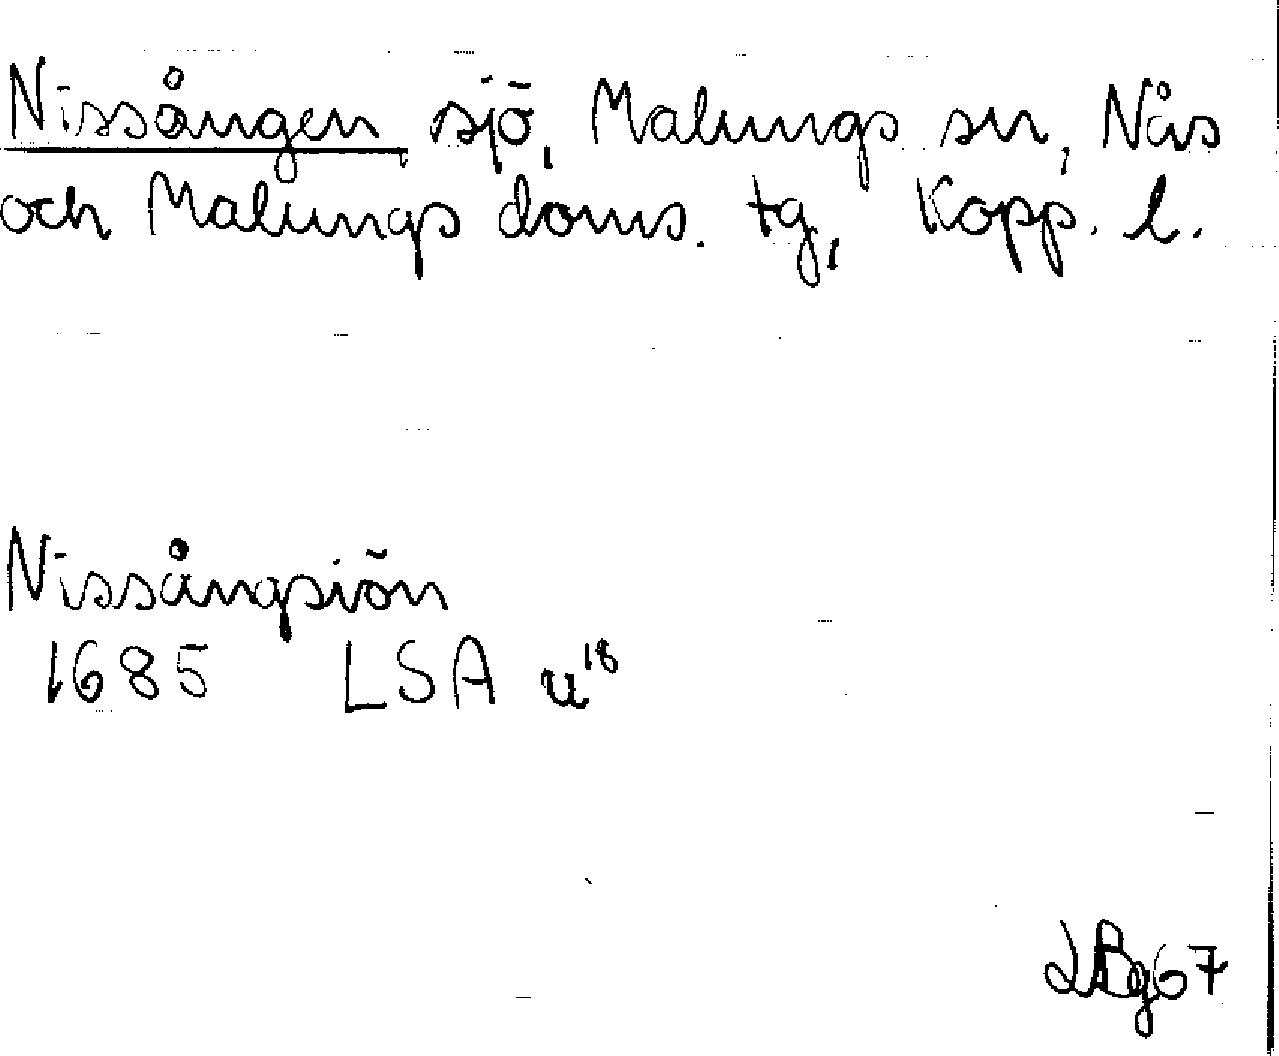 Nissången sjö, Malungs sn, Nås
och Malungs doms. tg, Kopp. l.
Nissångsiön
1685 LSA u¹⁸